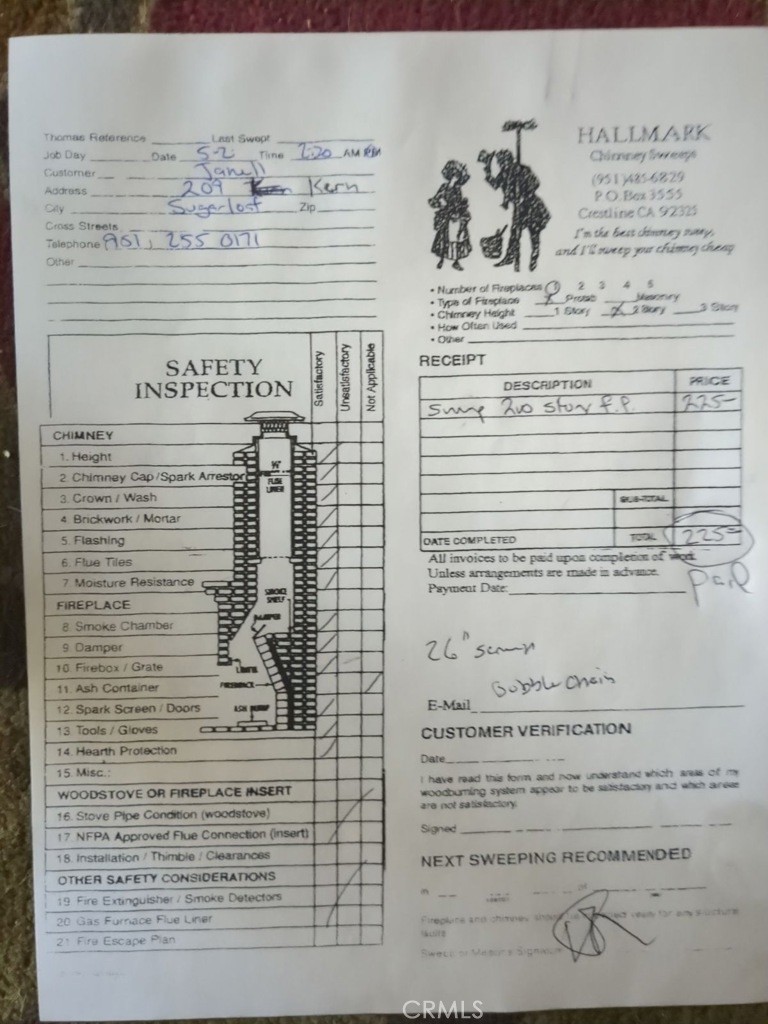 Thomas Reference Last Swept
Job Day Date 5-2 Time 2:20 AM PM
Customer Janell
Address 209 Kern
City Sugarloaf Zip
Cross Streets
Telephone 951, 255 0171
Other
HALLMARK
Chimney Sweeps
(951)485-6829
P.O. Box 3555
Crestline CA 92325
I'm the best chimney sweep,
and I'll sweep your chimney cheap
• Number of Fireplaces 1 2 3 4 5
• Type of Fireplace Prefab Masonry
• Chimney Height 1 Story 2 Story 3 Story
• How Often Used
• Other
SAFETY
INSPECTION
Satisfactory
Unsatisfactory
Not Applicable
CHIMNEY
1. Height
2. Chimney Cap/Spark Arrestor
3. Crown / Wash
4. Brickwork / Mortar
5. Flashing
6. Flue Tiles
7. Moisture Resistance
FIREPLACE
8. Smoke Chamber
9. Damper
10. Firebox / Grate
11. Ash Container
12. Spark Screen / Doors
13. Tools / Gloves
14. Hearth Protection
15. Misc.:
WOODSTOVE OR FIREPLACE INSERT
16. Stove Pipe Condition (woodstove)
17. NFPA Approved Flue Connection (insert)
18. Installation / Thimble / Clearances
OTHER SAFETY CONSIDERATIONS
19. Fire Extinguisher / Smoke Detectors
20. Gas Furnace Flue Liner
21. Fire Escape Plan
FLUE
LINER
SMOKE
SHELF
DAMPER
LINTEL
FIREBACK
ASH DUMP
RECEIPT
DESCRIPTION PRICE
story F.P. 225-
SUB-TOTAL
DATE COMPLETED TOTAL 225-
All invoices to be paid upon completion of work.
Unless arrangements are made in advance.
Payment Date: Paid
26"
E-Mail
CUSTOMER VERIFICATION
Date
I have read this form and now understand which areas of my
woodburning system appear to be satisfactory and which areas
are not satisfactory.
Signed
NEXT SWEEPING RECOMMENDED
CRMLS